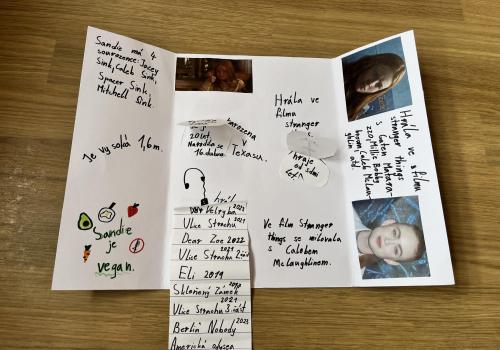 Sandie má 4
sourozence: Jacey
Sink, Caleb Sink,
Spacer Sink,
Mitchell Sink.
Je vysoká 1,6m.
Sandie
je
vegan.
20let.
Narodila se
16.dubna.
narozena
v
Texasu.
hrál
Velryba 2021
Ulice Strachu 2021
Dear Zoe 2022
Ulice Strachu 2 část 2021
Eli 2019
Skleněný Zámek
Ulice Strachu 3 část 2021
Berlin Nobody 2023
Americká odysea
Hrála ve
filmu
stranger
hraje
od sedmi
let
Ve film Stranger
things se milovala
s Calebem
McLaughlinem.
Hrála ve filmu
stranger things
s Gaten Matara-
zzo, Millie Bobby
brown, Caleb McLau-
ghlin atd.